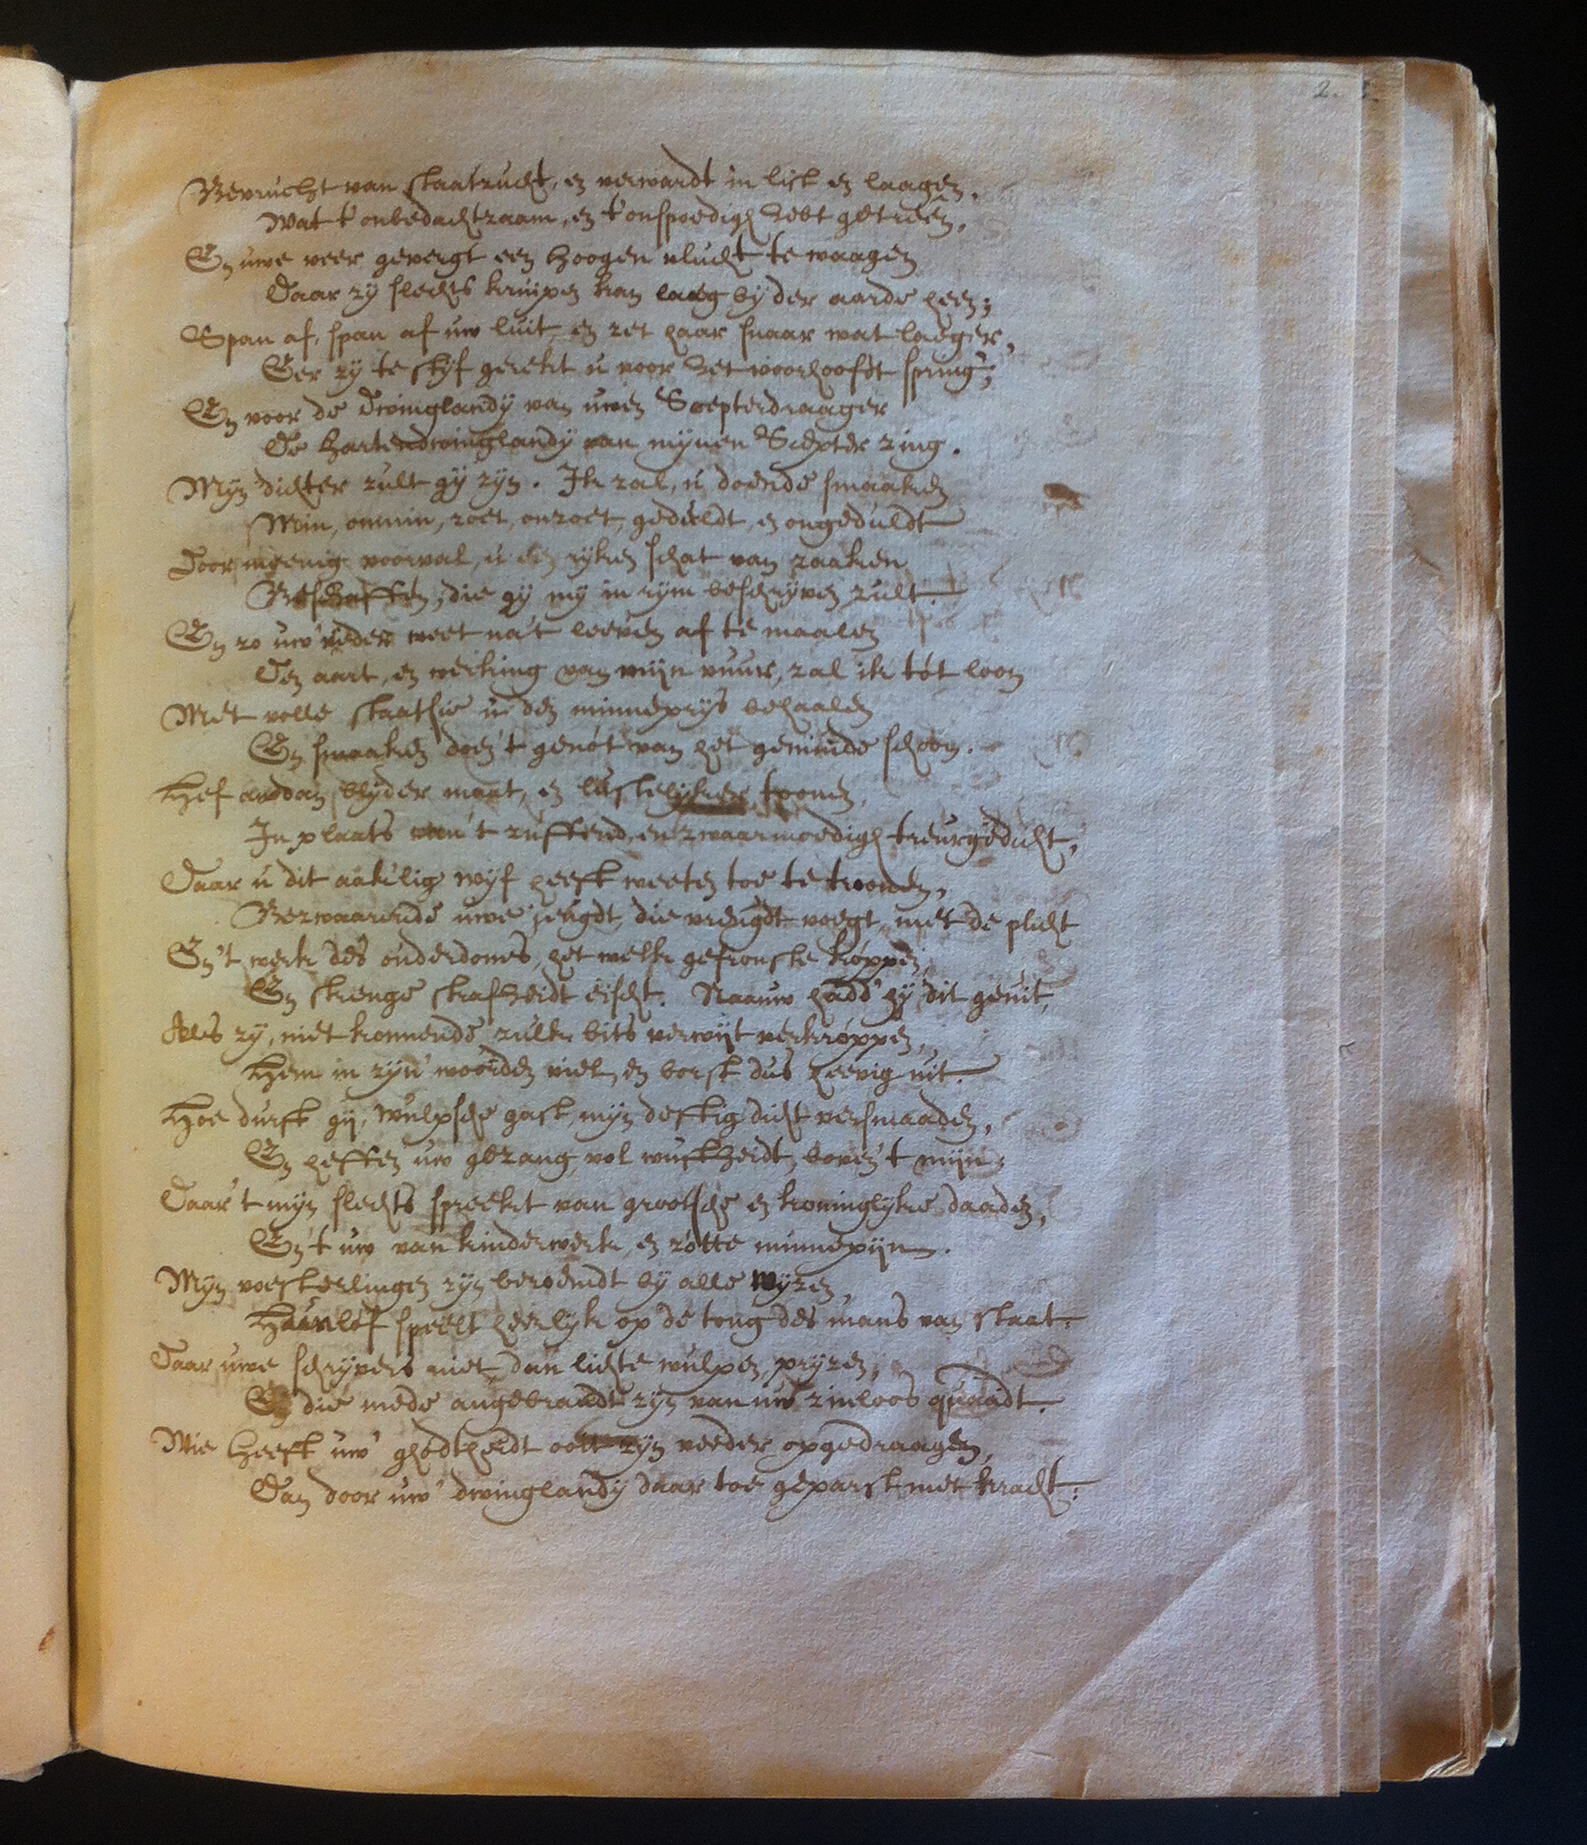 2.
Bevrucht van staatzucht, en verwardt in list en laagen,
Wat t'onbedachtzaam, en t'onspoedigh hebt getreên,
En uwe veer gevergt een hoogen vlucht te waagen
Daar zy slechts kruipen kan laeg by der aarde heen;
Span af, span af uw luit, en zet haar snaar wat laeger,
Eer zy te styf gerekt u voor het voorhooft spring';
En voor de dwinglandy van uwen Scepterdraager
De hartendwinglandy van mynen Schepter zing.
Myn dichter zult gy zyn. Ik zal, u doende smaaken
Min, onmin, zoet, onzoet, geduldt, en ongeduldt
Door menig voorval, u den ryken schat van zaaken
Beschaffen, die gy my in rym beschryven zult.
En zo uw veder weet na't leeven af te maalen
Den aart, en werking van mijn vuur, zal ik tót loon
Met volle staatsie u den minneprys behaalen
En smaaken doen't genót van het geminde schoon.
Hef an dan blyder maat, en lustelyker toonen,
In plaats van't zuffend, en zwaarmoedigh treurgedicht,
Daar u dit aaklig wyf heeft weeten toe te troonen,
Bezwaarende uwe jeugdt, die vreugdt voegt, met de plicht
En't werk des ouderdoms, het welk gefronste koppen,
En strenge strafheidt eischt. Naauw hadd' hy dit geuit,
Als zy, niet konnende zulk bits verwijt verkroppen,
Hem in zyn woorden viel, en borst dus heevig uit.
Hoe durft gij, wulpsche gast, myn deftig dicht versmaaden,
En heffen uw gezang, vol wuftheidt, boven't mijn;
Daar't myn slechts spreekt van grootsche en koninglyke daaden,
En't uw van kinderwerk, en zotte minnepijn.
Myn voesterlingen zyn beroemdt by alle wyzen,
Haar lóf speelt heerlyk op de tong des mans van staat.
Daar uwe schryvers niet, dan lichte wulpen, pryzen,
En die mede angebrandt zyn van uw zinloos quaadt.
Wie heeft uw' godtheidt ooit zyn veeder opgedraagen,
Dan door uw' dwinglandy daar toe geparst met kracht: